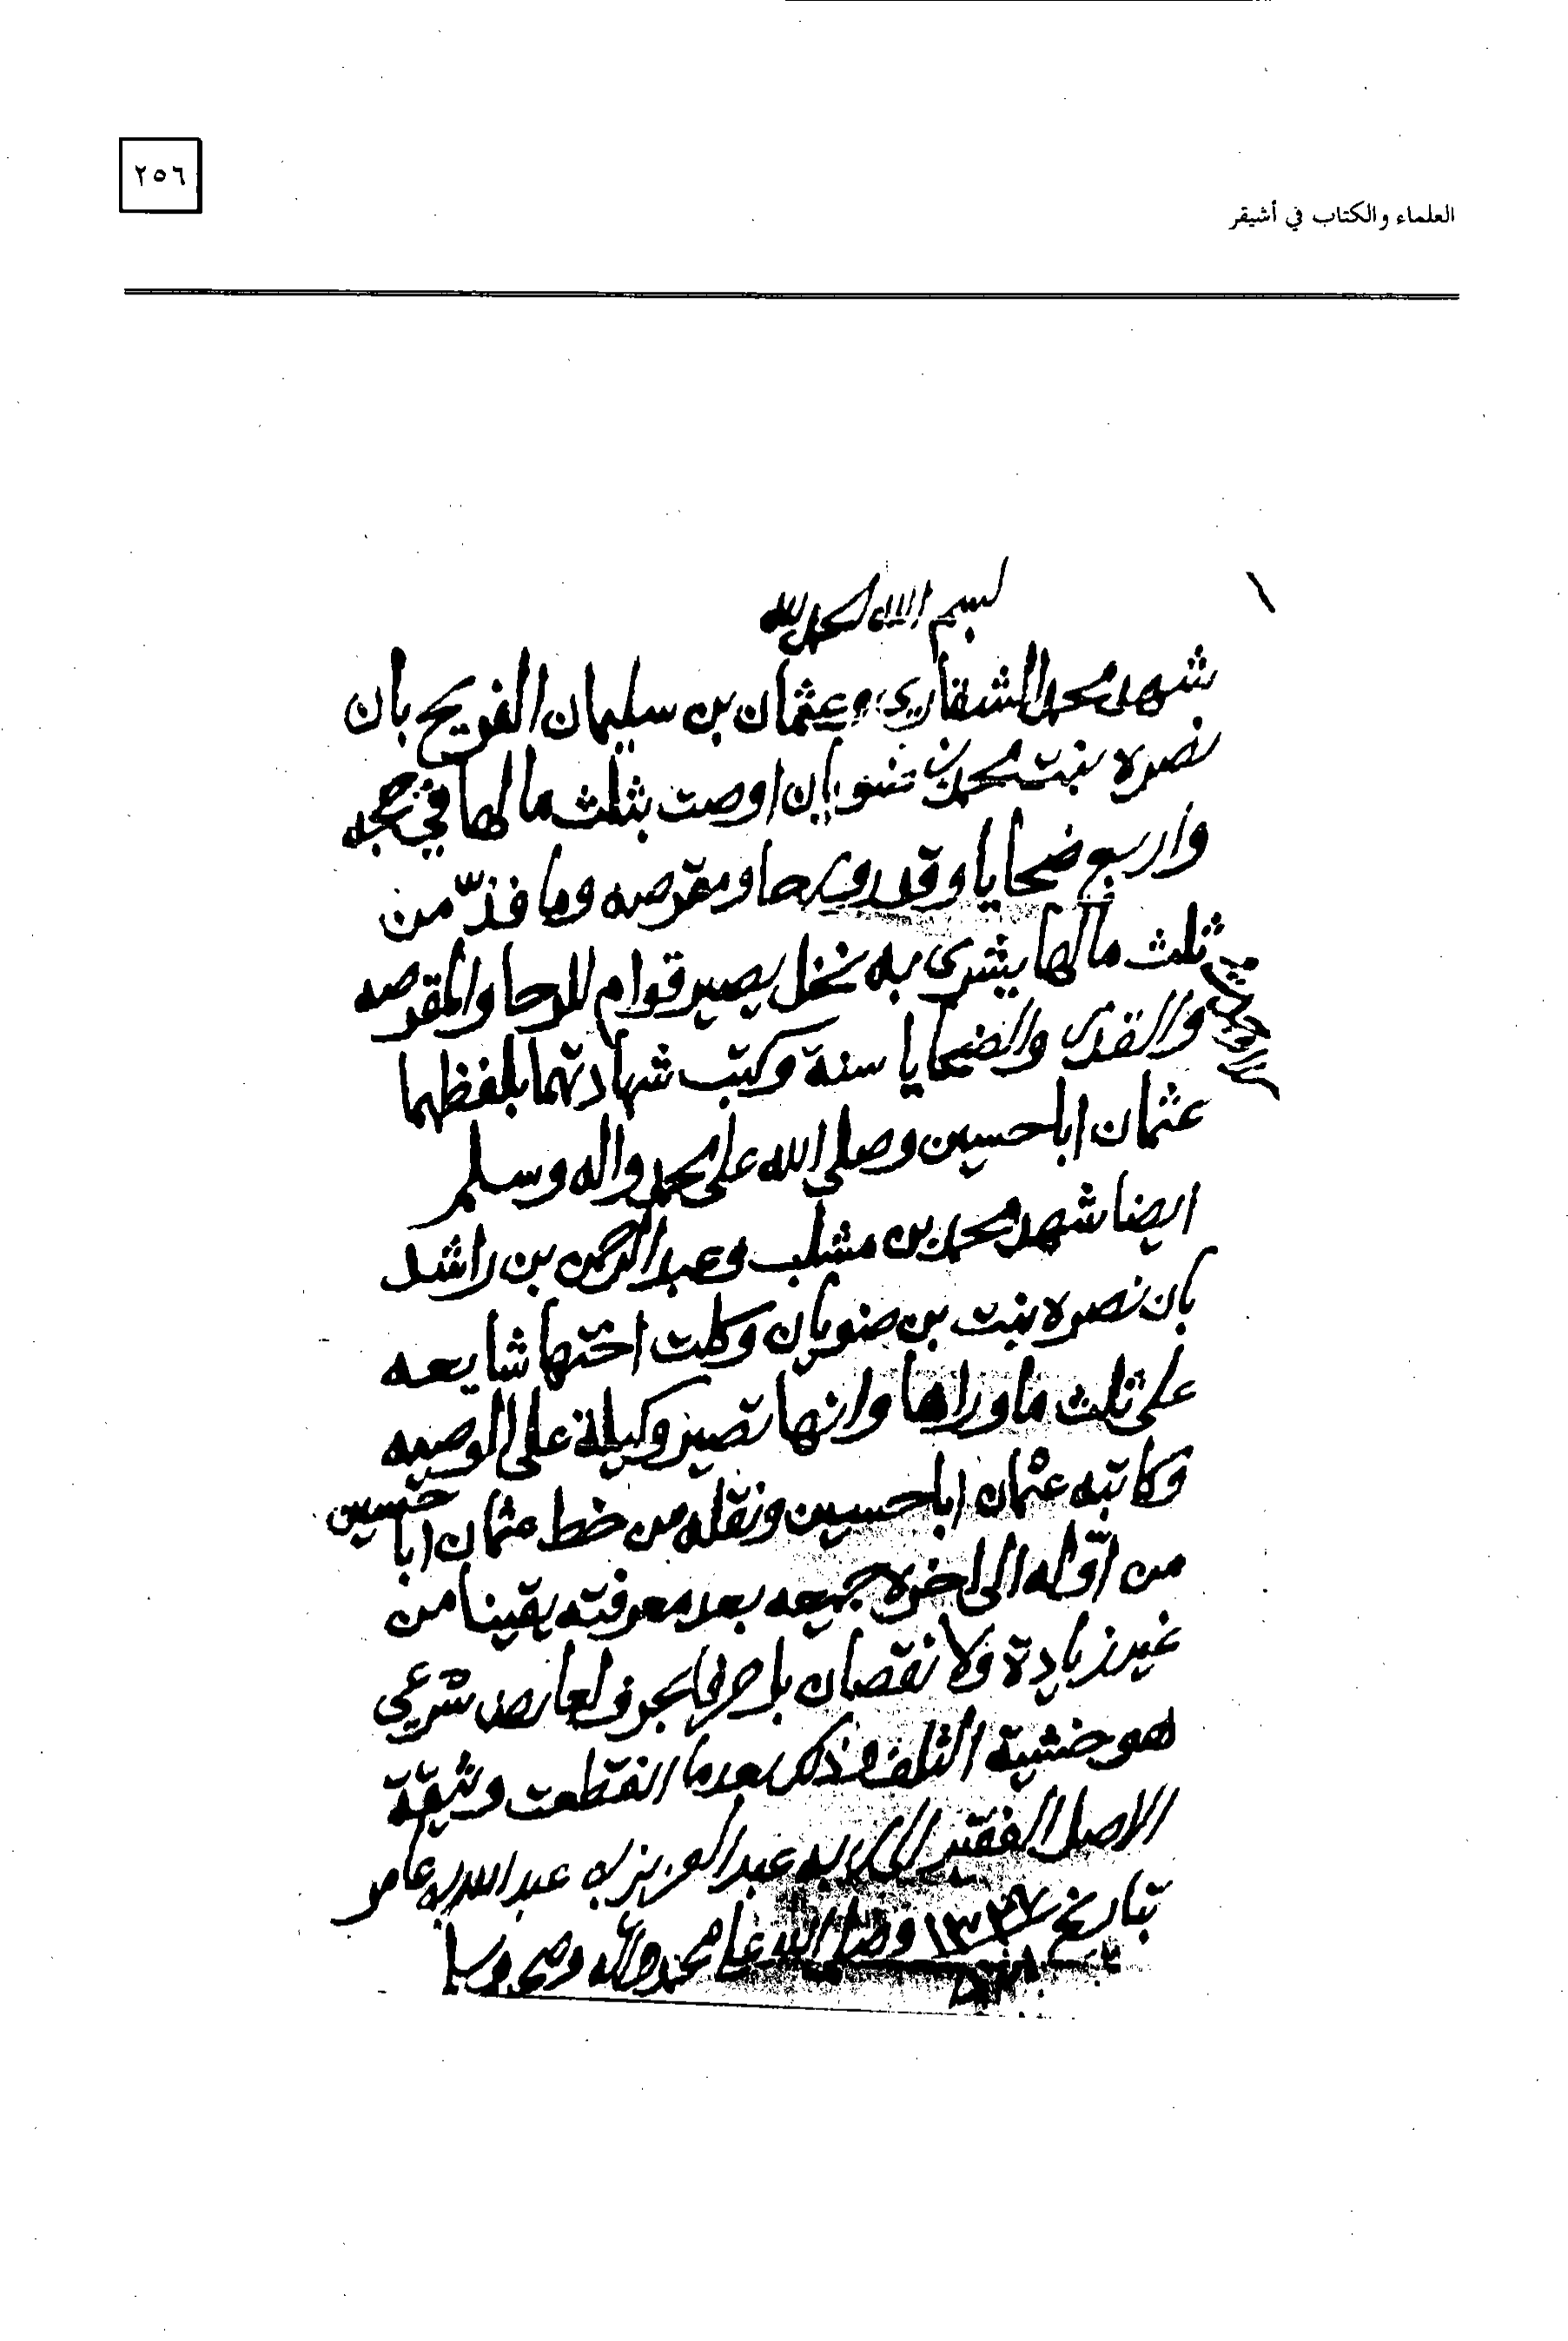 ٢٥٦
العلماء والكتاب في أشيقر
بسم الله الحمد لله
شهد محمد الشقاري وعثمان بن سليمان الفريح بان
نصره بنت محمد بن ضويان اوصت بثلث مالها في حجه
واربع ضحايا وقدر ورحا ومقرصه وما فذّ من
ثلث مالها يشرى به نخل يصير قوام للرحا والمقرصه
والقدر والضحايا سنة وكتب شهادتهما بلفظهما
عثمان ابا حسين وصلى الله على محمد واله وسلم
ايضا شهد محمد بن مشلب وعبد الرحمن بن راشد
بان نصره بنت بن ضويان وكلت اختها شايعه
على ثلث ما وراها وانها تصير وكيلة على الوصيه
وكاتبه عثمان ابا حسين ونقله من خط عثمان ابا حسين
من اوله الى اخره جميعه بعد معرفته يقينا من
غير زيادة ولا نقصان بل حرفا بحرف لعارض شرعي
هو خشية التلف وذلك بعد ما انقطعت وثيقة
الاصل الفقير الى ربه عبد العزيز بن عبد الله بن عامر
بتاريخ ١٣٣٧ وصلى الله على محمد واله وصحبه وسلم